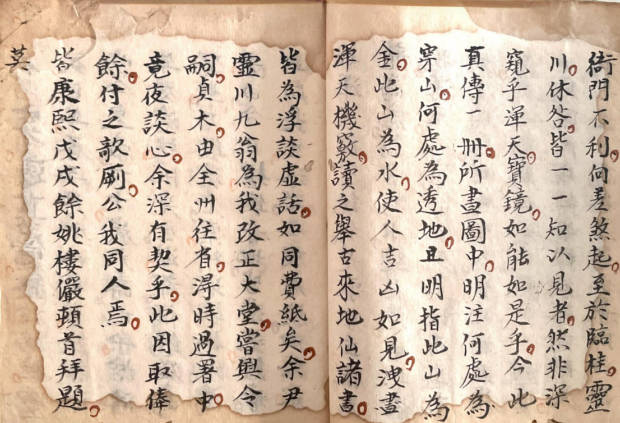 衙門不利何差煞起至於臨桂靈
川休咎皆一一知以見者然非深
窺乎渾天寶鏡如能如是乎今此
真傳一冊所畫圖中明注何處為
穿山何處為透地且明指此山為
金此山為水使人吉凶如見洩盡
渾天機竅讀之舉古來地仙諸書
皆為浮談虛話如同費紙矣余尹
靈川九翁為我改正大堂嘗興令
嗣貞木由全州往省淂時過署中
竟夜談心余深有契乎此因取俸
餘付之歌劂公我同人焉
皆康熙戊戌餘姚樓儼頓首拜題
英